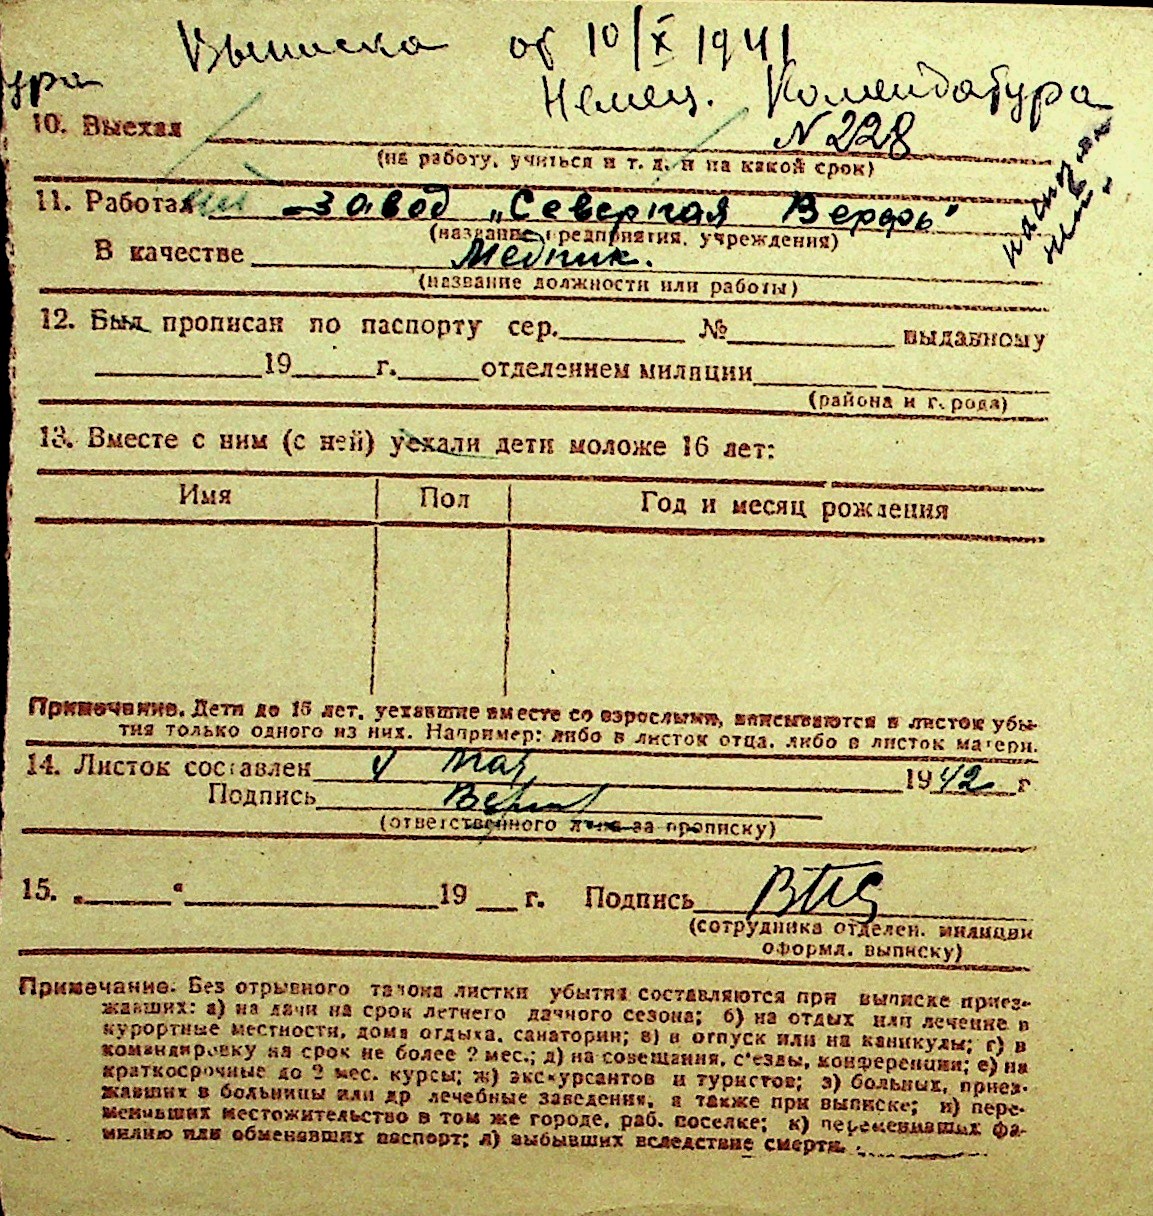 Выписка от 10/X 1941
ура Немец. Комендатура
N 228
10. Выехал
(на работу, учиться и т. д. и на какой срок)
11. Работал завод „Северная Верфь"
(название предприятия, учреждения)
В качестве Медник.
(название должности или работы)
12. Был прописан по паспорту сер. № выданному
19 г. отделением милиции
(района и города)
13. Вместе с ним (с ней) уехали дети моложе 16 лет:
Имя Пол Год и месяц рождения
Примечание. Дети до 16 лет, уехавшие вместе со взрослыми, вписываются в листок убы-
тия только одного из них. Например: либо в листок отца, либо в листок матери.
14. Листок составлен 1942 г
Подпись
(ответственного лица за прописку)
15. „ " 19 г. Подпись
(сотрудника отделен. милиции
оформл. выписку)
Примечание. Без отрывного талона листки убытия составляются при выписке приез-
жавших: а) на дачи на срок летнего дачного сезона; б) на отдых или лечение в
курортные местности, дома отдыха, санатории; в) в отпуск или на каникулы; г) в
командировку на срок не более 2 мес.; д) на совещания, с'езды, конференции; е) на
краткосрочные до 2 мес. курсы; ж) экскурсантов и туристов; з) больных, приез-
жавших в больницы или др лечебные заведения, а также при выписке; и) пере-
менивших местожительство в том же городе, раб. поселке; к) переменивших фа-
милию или обменявших паспорт; л) выбывших вследствие смерти.